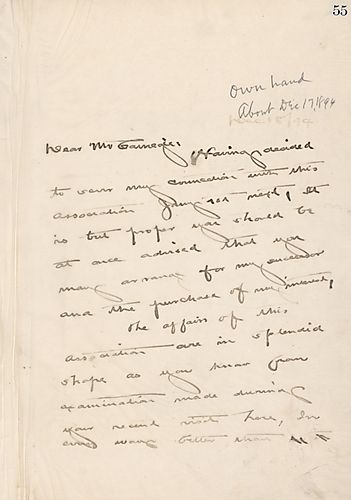 55
Own hand
About Dec 17, 1894
Dec 18/94
Dear Mr Carnegie, Having decided
to sever my connection with this
Association Jany 1st next, it
is but proper you should be
at once advised that you
may arrange for my successor
and the purchase of my interest,
The affairs of this
Association are in splendid
shape as you know from
examination made during
your recent visit here, In
every way better than